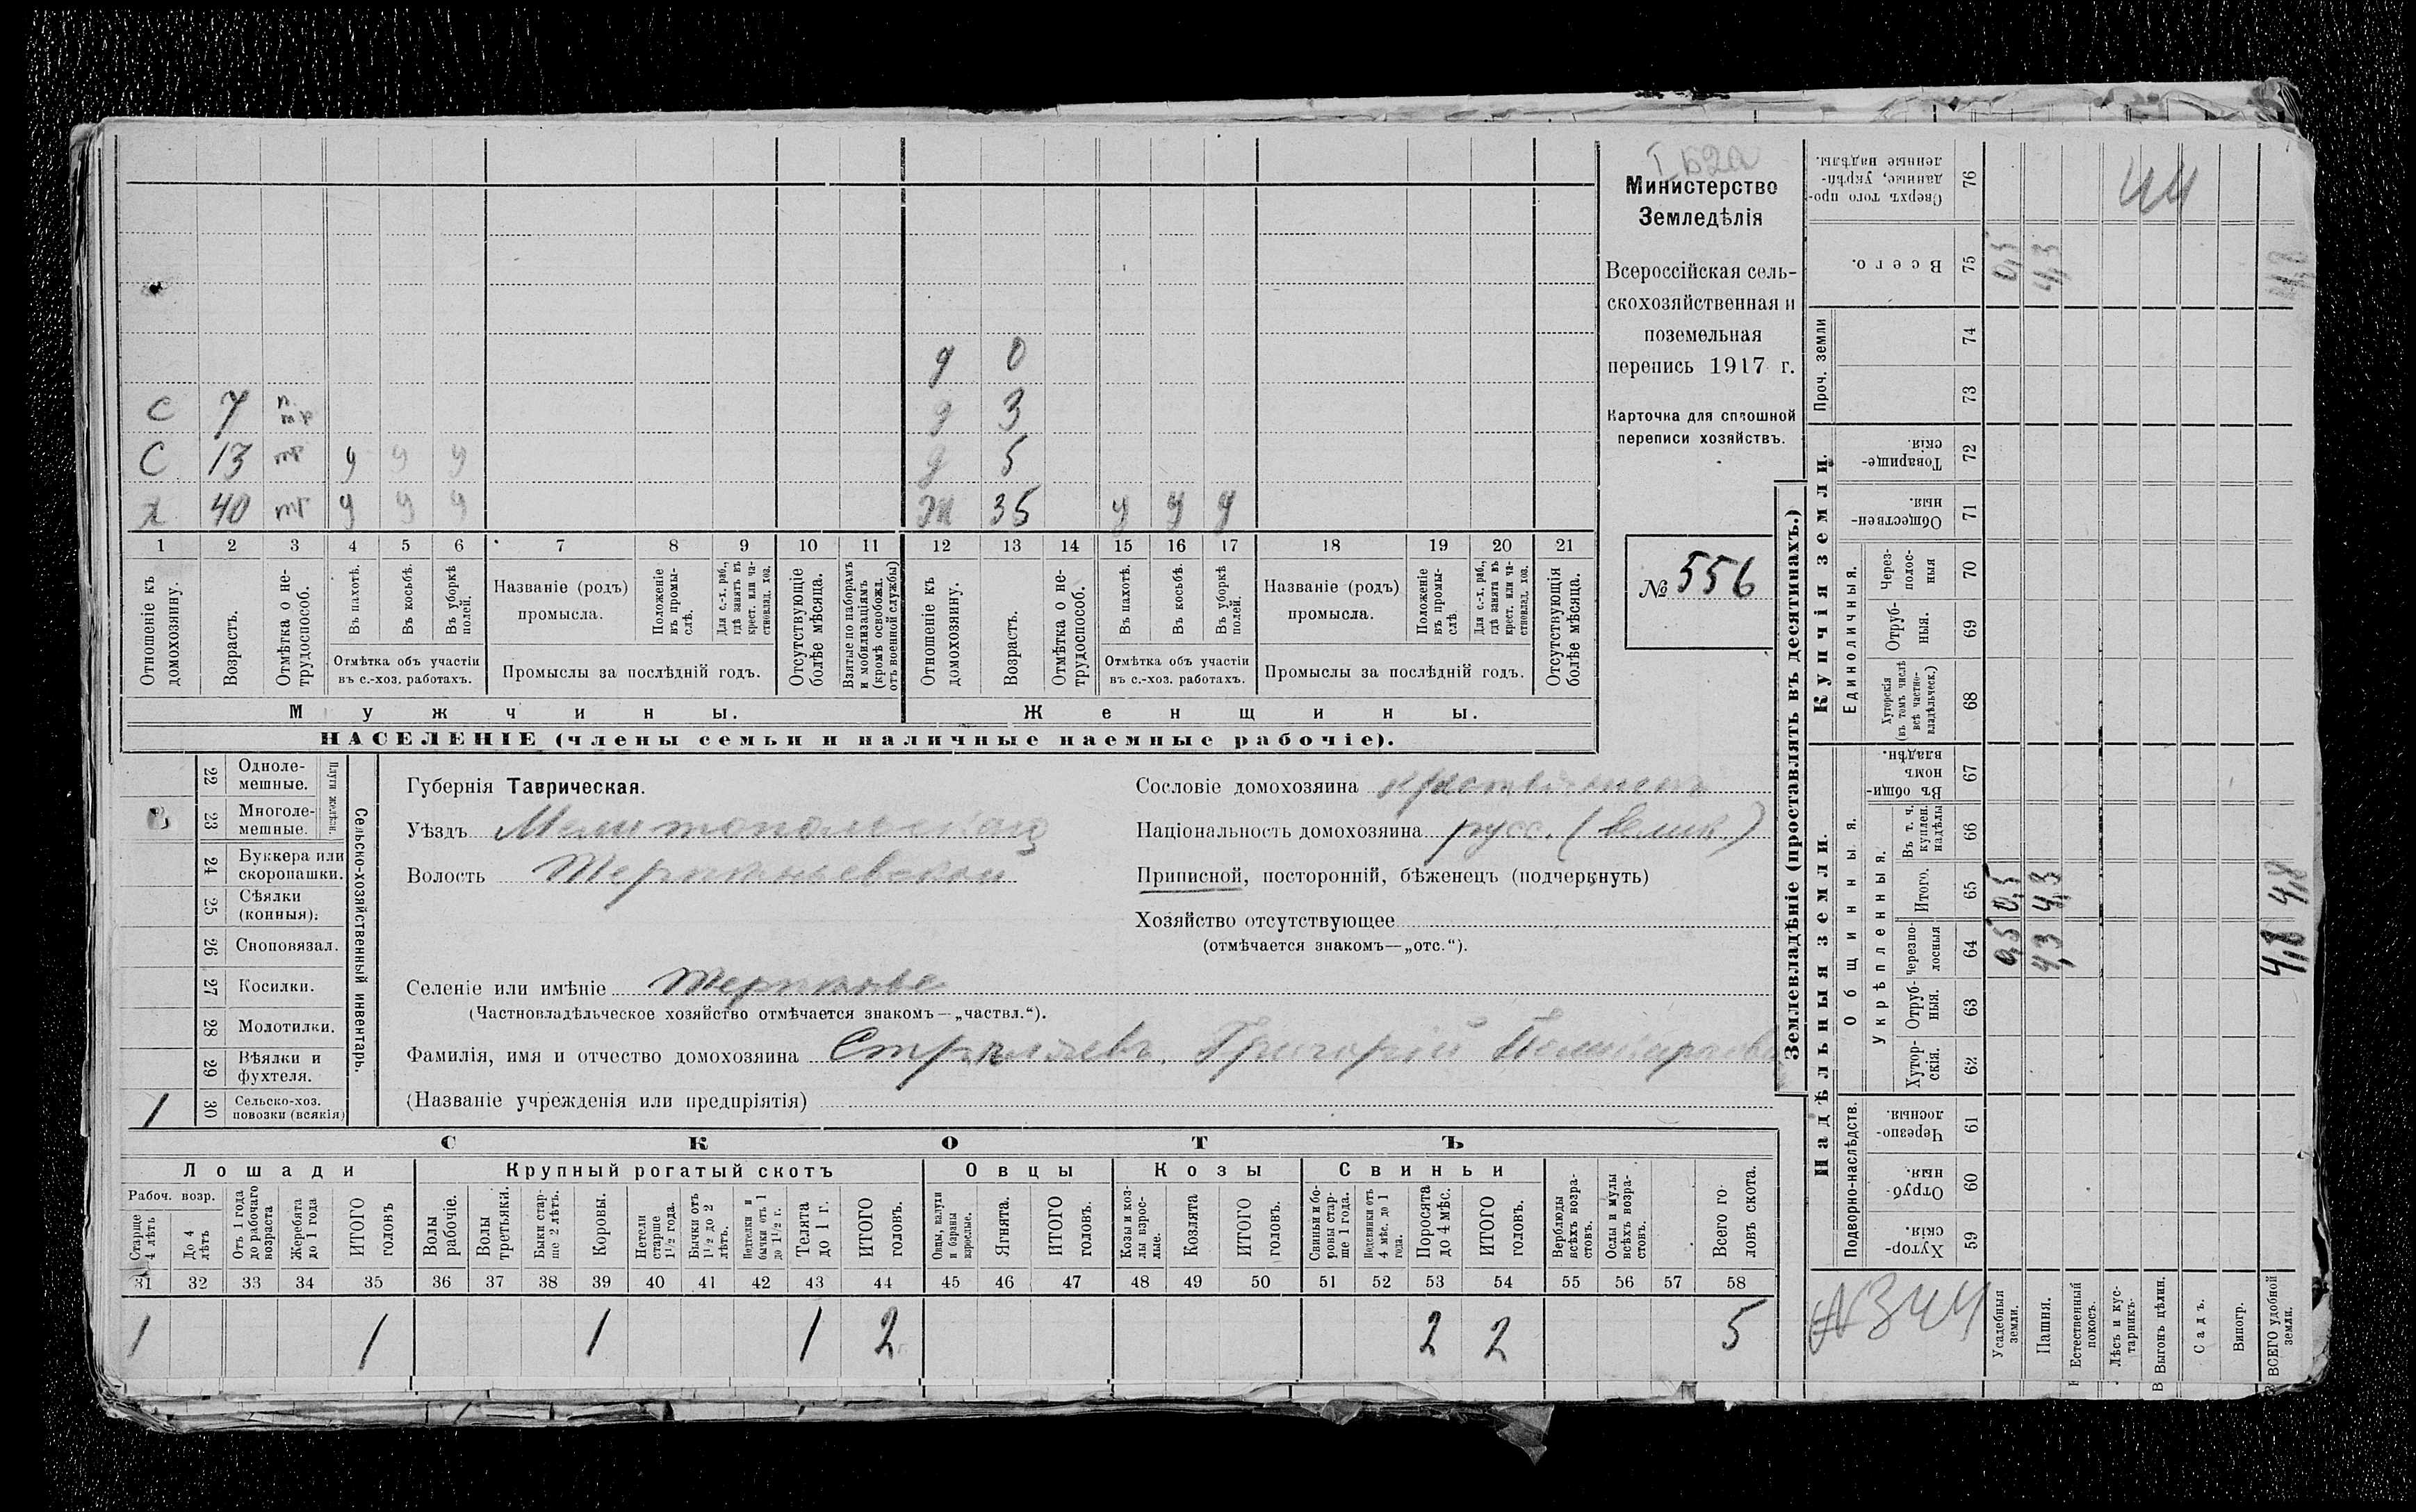 I Б2а
Министерство
Земледѣлія
Всероссійская сель-
скохозяйственная и
поземельная
перепись 1917 г.
Карточка для сплошной
переписи хозяйствъ.
№ 556
д 0
с 7 п. тр д 3
с 13 тр у у у д 5
х 40 тр у у у ж 35 у у у
1 2 3 4 5 6 7 8 9 10 11 12 13 14 15 16 17 18 19 20 21
Отношеніе къ домохозяину.
Возрастъ.
Отмѣтка о не-трудоспособ.
Въ пахотѣ.
Въ косьбѣ.
Въ уборкѣ полей.
Отмѣтка объ участіи
въ с.-хоз. работахъ.
Названіе (родъ)
промысла.
Положеніе въ промы-слѣ.
Для с.-х. раб., гдѣ занятъ въ крест. или ча-стновлад. хоз.
Промыслы за послѣдній годъ.
Отсутствующіе болѣе мѣсяца.
Взятые по наборамъ и мобилизаціямъ (кромѣ освобожд. отъ военной службы)
Отношеніе къ домохозяину.
Возрастъ.
Отмѣтка о не-трудоспособ.
Въ пахотѣ.
Въ косьбѣ.
Въ уборкѣ полей.
Отмѣтка объ участіи
въ с.-хоз. работахъ.
Названіе (родъ)
промысла.
Положеніе въ промы-слѣ
Для с.-х. раб., гдѣ занята въ крест. или ча-стновлад. хоз.
Промыслы за послѣдній годъ.
Отсутствующія болѣе мѣсяца.
Мужчины. Женщины.
НАСЕЛЕНІЕ (члены семьи и наличные наемные рабочіе).
Сельско-хозяйственный инвентарь.
Плуги желѣзн.
22 Одноле-мешные.
23 Многоле-мешные.
24 Буккера или скоропашки.
25 Сѣялки (конныя).
26 Сноповязал.
27 Косилки.
28 Молотилки.
29 Вѣялки и фухтеля.
1 30 Сельско-хоз. повозки (всякія)
Губернія Таврическая.
Уѣздъ Мелитопольскаго
Волость
Селеніе или имѣніе
(Частновладѣльческое хозяйство отмѣчается знакомъ—„частвл.“).
Фамилія, имя и отчество домохозяина Григорій
(Названіе учрежденія или предпріятія)
Сословіе домохозяина крестьянинъ
Національность домохозяина русс. (велик.)
Приписной, посторонній, бѣженецъ (подчеркнуть)
Хозяйство отсутствующее
(отмѣчается знакомъ—„отс.“).
СКОТЪ
Лошади Крупный рогатый скотъ Овцы Козы Свиньи
Рабоч. возр.
Старше 4 лѣтъ
До 4 лѣтъ
Отъ 1 года до рабочаго возраста
Жеребята до 1 года
ИТОГО головъ
Волы рабочіе.
Волы третьяки.
Быки стар-ше 2 лѣтъ.
Коровы.
Нетели старше 1½ года.
Бычки отъ 1½ до 2 лѣтъ.
Подтелки и бычки отъ 1 до 1½ г.
Телята до 1 г.
ИТОГО головъ.
Овцы, валухи и бараны взрослые.
Ягнята.
ИТОГО головъ.
Козы и коз-лы взрос-лые.
Козлята
ИТОГО головъ.
Свиньи и бо-ровы стар-ше 1 года.
Подсвинки отъ 4 мѣс. до 1 года.
Поросята до 4 мѣс.
ИТОГО головъ.
Верблюды всѣхъ возра-стовъ.
Ослы и мулы всѣхъ возра-стовъ.
Всего го-ловъ скота.
31 32 33 34 35 36 37 38 39 40 41 42 43 44 45 46 47 48 49 50 51 52 53 54 55 56 57 58
1 1 1 1 2 2 2 5
Землевладѣніе (проставлять въ десятинахъ.)
Надѣльныя земли.
Купчія земли.
Проч. земли
Подворно-наслѣдств.
Общинныя.
Укрѣпленныя.
Единоличныя.
59 Хутор-скія.
60 Отруб-ныя.
61 Черезпо-лосныя.
62 Хутор-скія.
63 Отруб-ныя.
64 Черезпо-лосныя 0,5 4,3 4,8
65 Итого. 0,5 4,3 4,8
66 Въ т. ч. куплен. надѣлы
67 Въ общи-номъ владѣн.
68 Хуторскія (въ томъ числѣ всѣ частно-владѣльческ.)
69 Отруб-ныя.
70 Через-полос-ныя
71 Обществен-ныя.
72 Товарище-скія.
73
74
75 Всего. 0,5 4,3 4,8
76 Сверхъ того про-данные, укрѣп-ленные надѣлы.
44
№344
Усадебныя земли.
Пашня.
Естественный покосъ.
Лѣсъ и кус-тарникъ.
Выгонъ цѣлин.
Садъ.
Виногр.
ВСЕГО удобной земли.